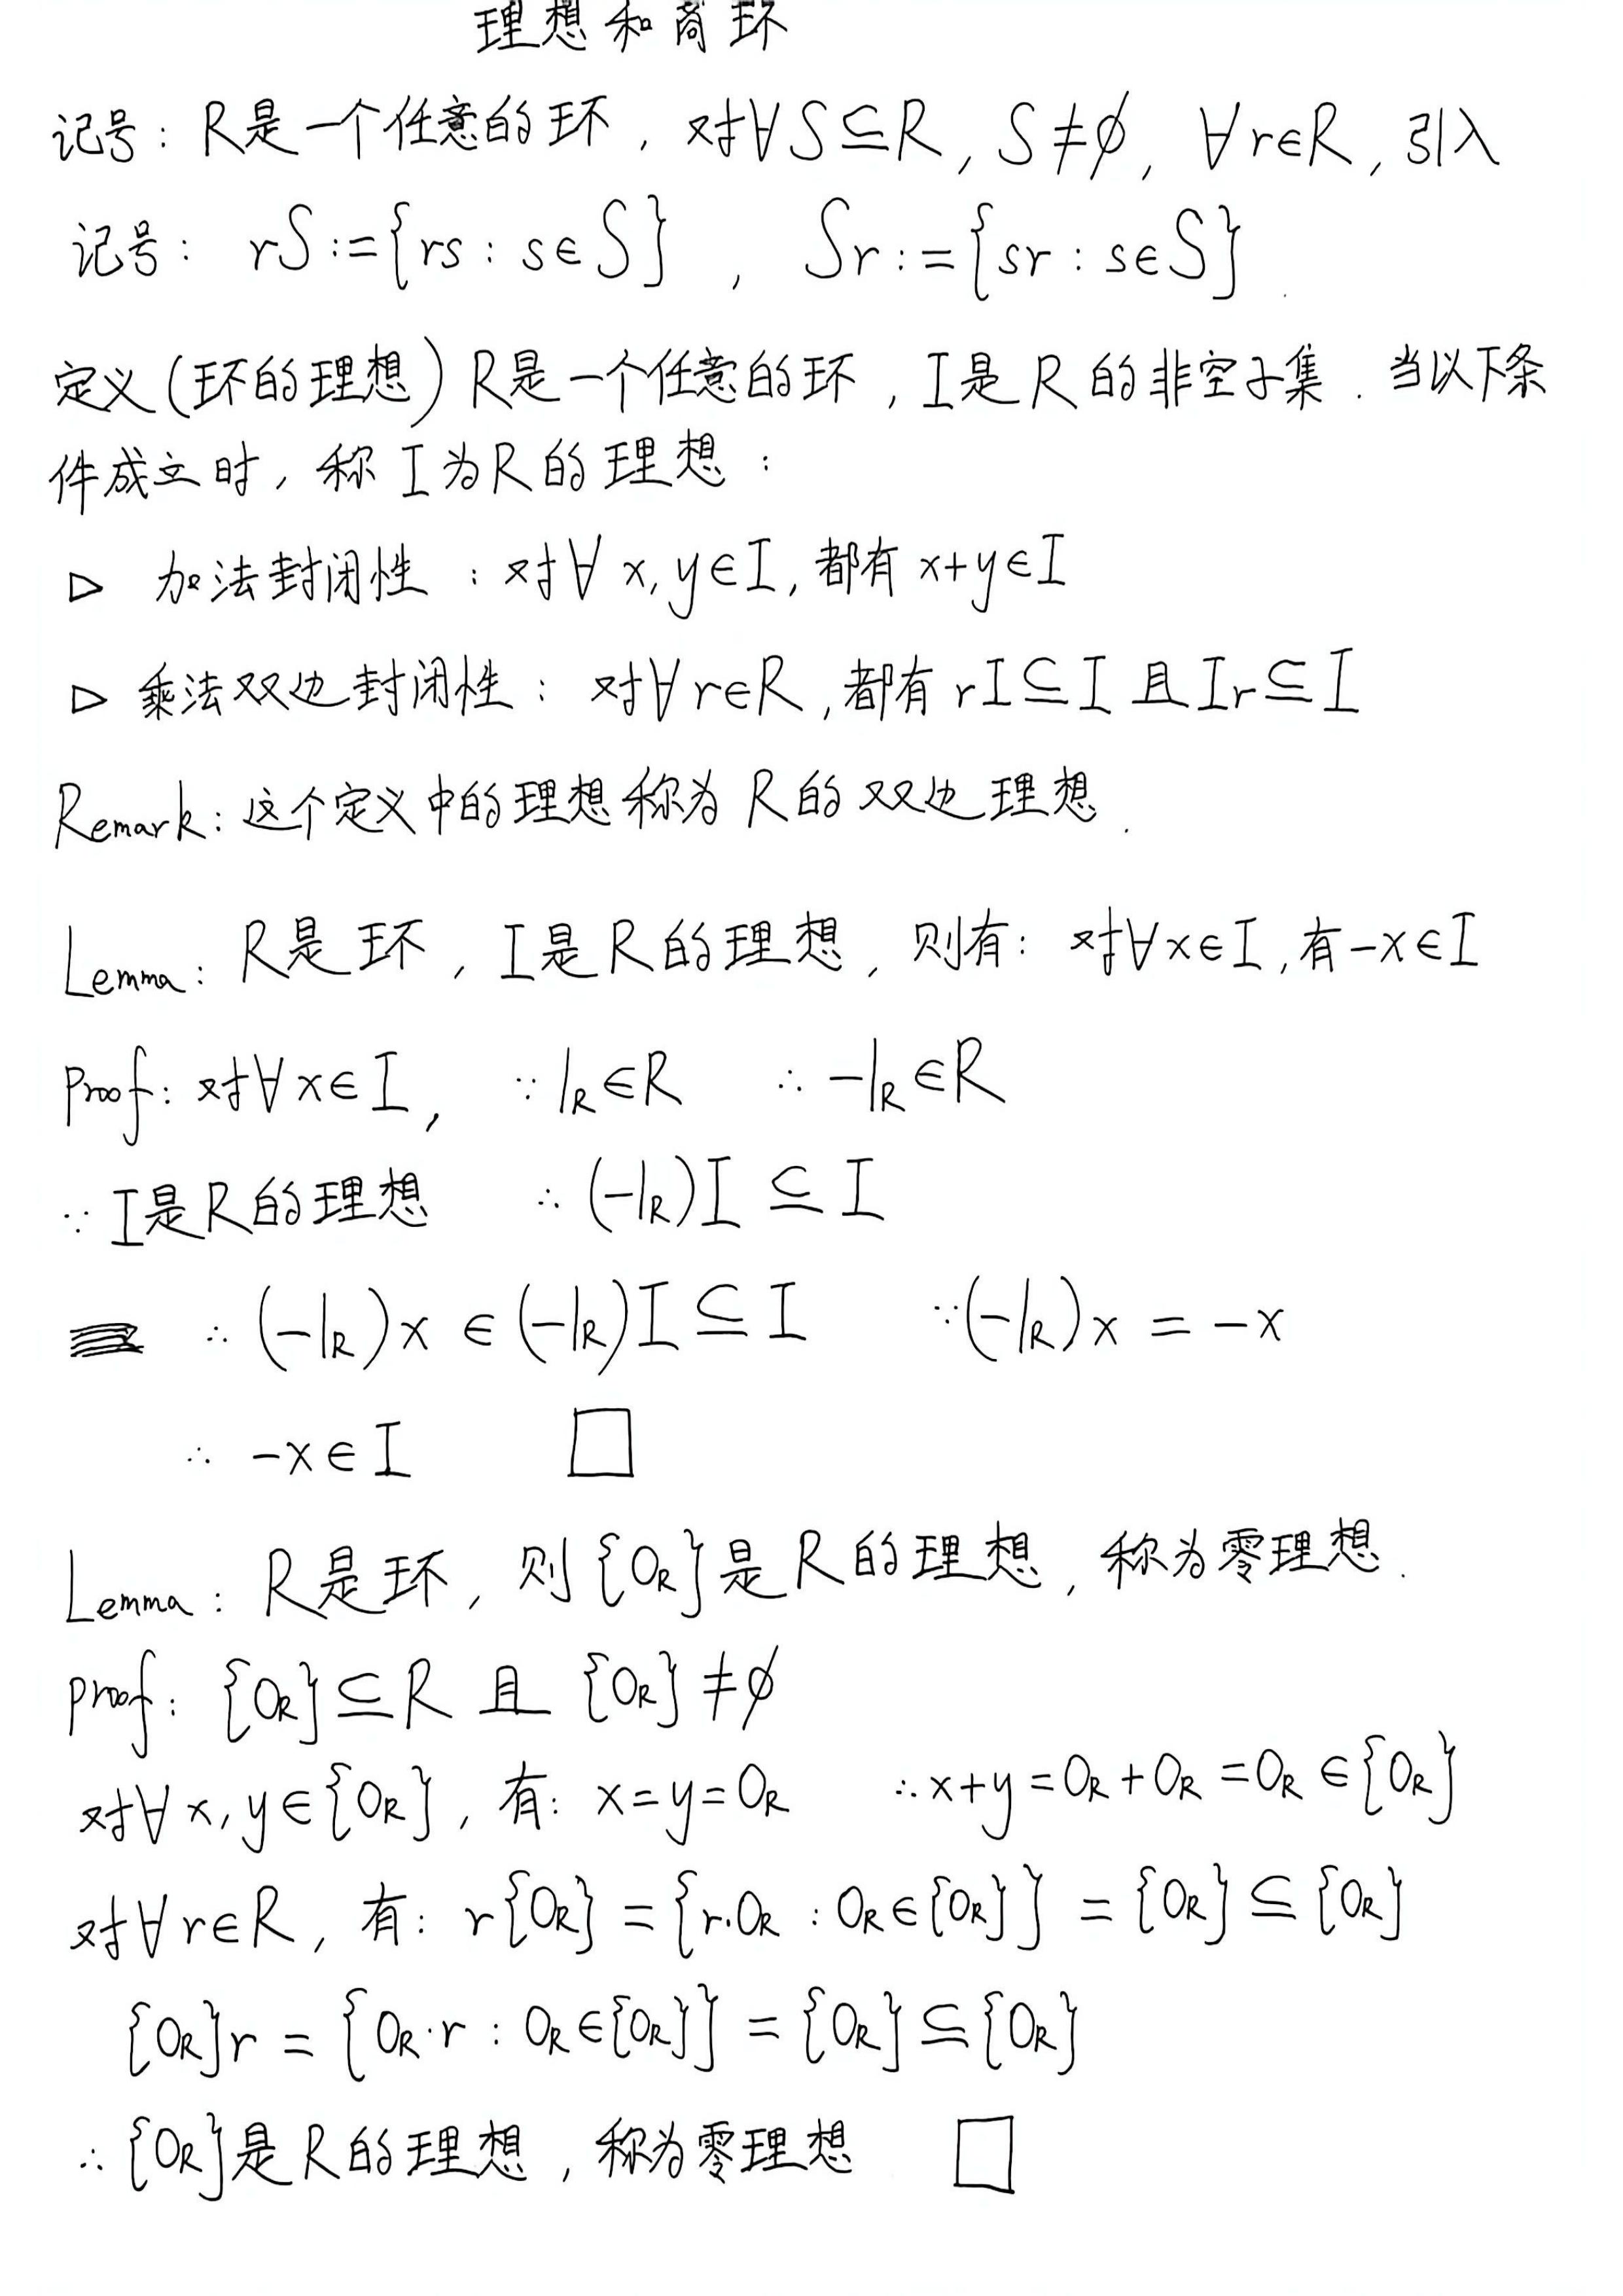 理想和商环
记号：R是一个任意的环，对∀S⊆R，S≠∅，∀r∈R，引入
记号： rS:={rs : s∈S} ， Sr:={sr : s∈S}.
定义(环的理想) R是一个任意的环，I是R的非空子集．当以下条
件成立时，称I为R的理想：
▷ 加法封闭性：对∀x,y∈I，都有x+y∈I
▷ 乘法双边封闭性：对∀r∈R，都有rI⊆I且Ir⊆I
Remark：这个定义中的理想称为R的双边理想．
Lemma：R是环，I是R的理想，则有：对∀x∈I，有-x∈I
Proof：对∀x∈I， ∵1_R∈R ∴-1_R∈R
∵I是R的理想 ∴(-1_R)I⊆I
∴(-1_R)x∈(-1_R)I⊆I ∵(-1_R)x=-x
∴-x∈I □
Lemma：R是环，则{0_R}是R的理想，称为零理想．
proof：{0_R}⊆R且{0_R}≠∅
对∀x,y∈{0_R}，有：x=y=0_R ∴x+y=0_R+0_R=0_R∈{0_R}
对∀r∈R，有：r{0_R}={r·0_R : 0_R∈{0_R}}={0_R}⊆{0_R}
{0_R}r={0_R·r : 0_R∈{0_R}}={0_R}⊆{0_R}
∴{0_R}是R的理想，称为零理想 □